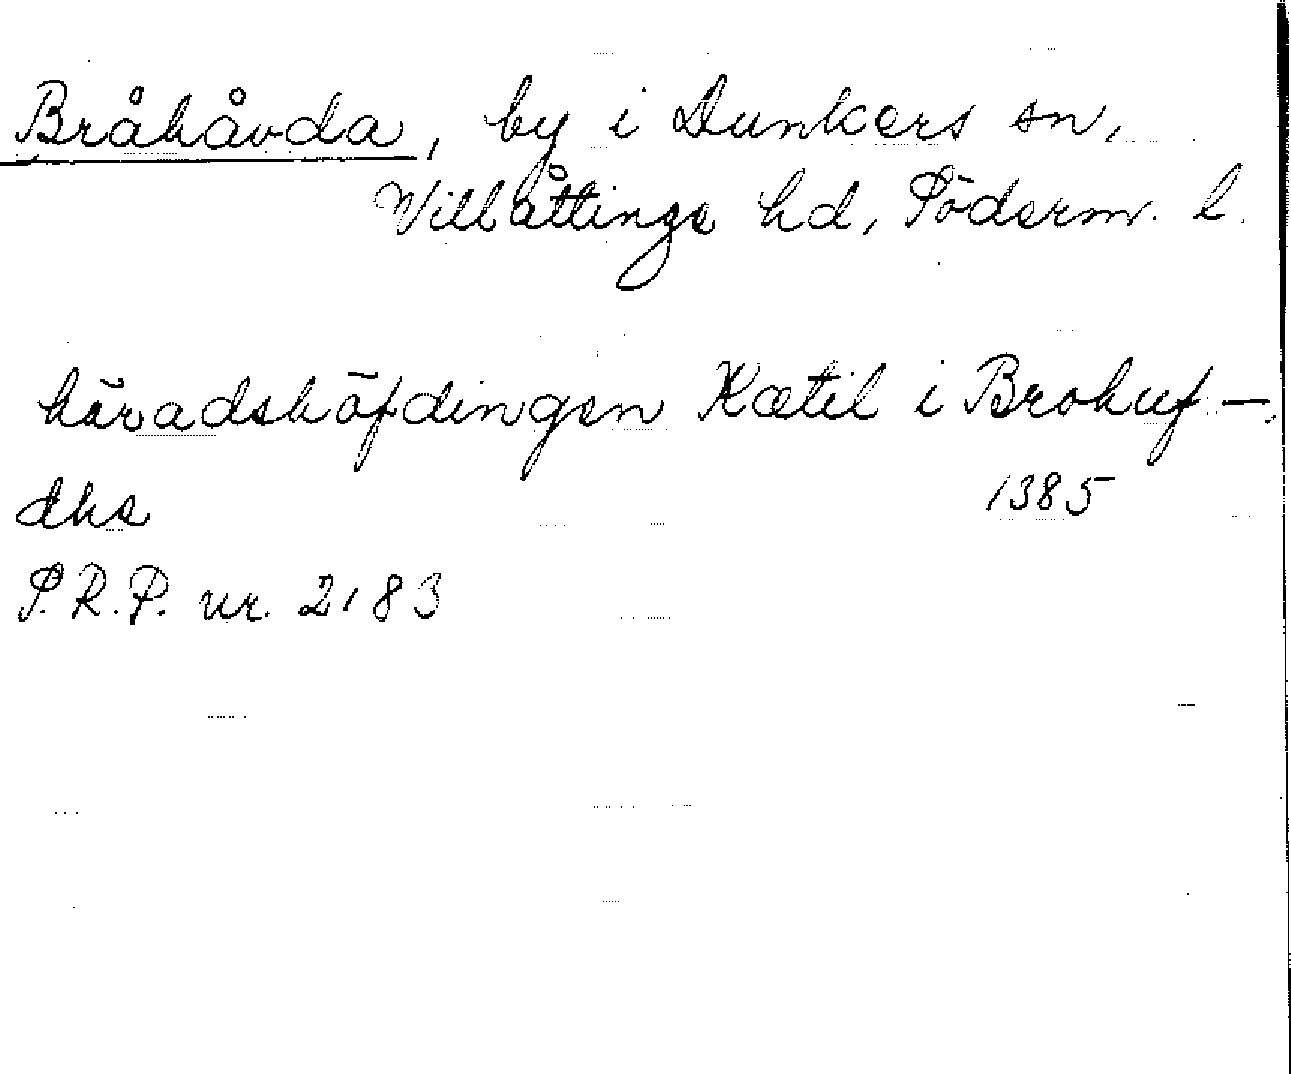 Bråhåvda, by i Dunkers sn,
Villåttinge hd, Söderm. l.
häradshöfdingen Kætil i Brohuf-
dhe
1385
S.R.P. nr. 2183